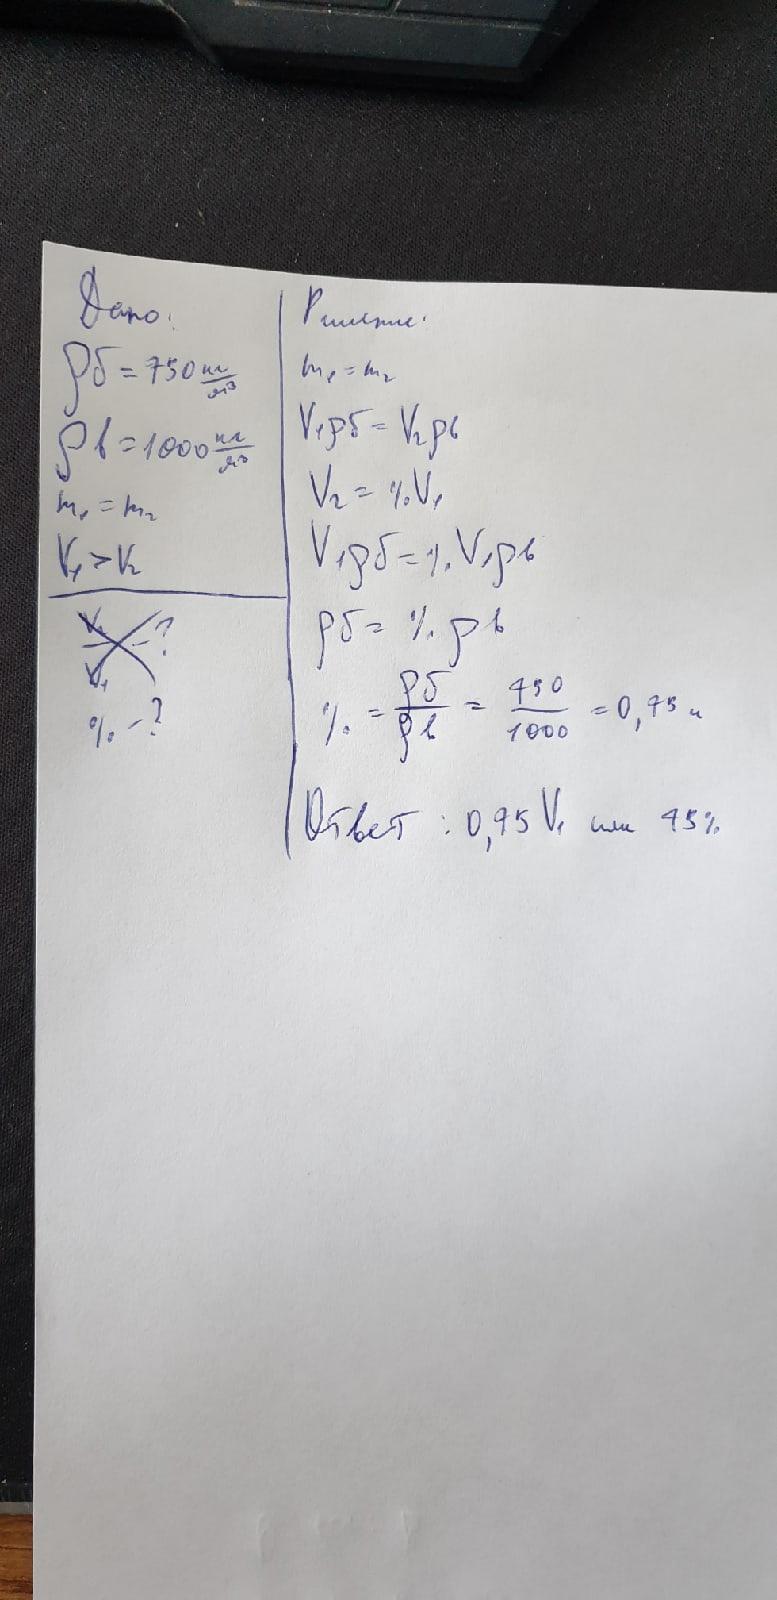 Дано:
ρб = 750 кг/м³
ρв = 1000 кг/м³
m₁ = m₂
V₁ > V₂
% - ?
Решение:
m₁ = m₂
V₁ρб = V₂ρв
V₂ = % V₁
V₁ρб = % V₁ρв
ρб = % ρв
% = ρб/ρв = 750/1000 = 0,75
Ответ: 0,75 V₁ или 75%